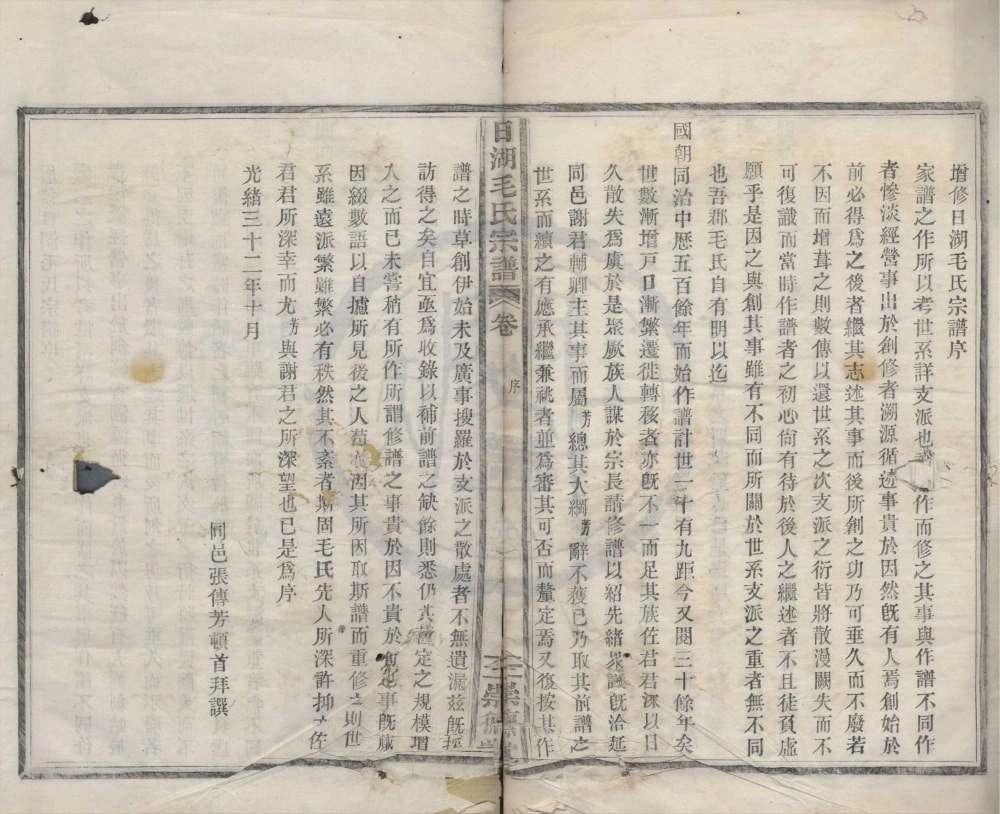 增修日湖毛氏宗譜序
家譜之作所以考世系詳支派也譜作而修之其事與作譜不同作
者慘淡經營事出於創修者溯源循迹事貴於因然既有人焉創始於
前必得爲之後者繼其志述其事而後所創之功乃可垂久而不廢若
不因而增葺之則數傳以還世系之次支派之衍皆將散漫闕失而不
可復識而當時作譜者之初心尙有待於後人之繼述者不且徒負虛
願乎是因之與創其事雖有不同而所關於世系支派之重者無不同
也吾郡毛氏自有明以迄
國朝同治中歷五百餘年而始作譜計世一十有九距今又閱三十餘年矣
世數漸增戸口漸繁遷徙轉移者亦旣不一而足其族佐君君深以日
久散失爲虞於是聚厥族人謀於宗長請修譜以紹先緒衆議旣洽延
同邑謝君輔卿主其事而屬芳總其大綱芳辭不獲已乃取其前譜之
世系而續之有應承繼兼祧者並爲審其可否而釐定焉又復按其作
日湖毛氏宗譜 卷 序
譜之時草創伊始未及廣事搜羅於支派之散處者不無遺漏茲旣採
訪得之矣自宜亟爲收錄以補前譜之缺餘則悉仍其釐定之規模增
入之而已未嘗稍有所作所謂修譜之事貴於因不貴於創也事旣蕆
因綴數語以自攄所見後之人苟因其所因取斯譜而重修之則世
系雖遠派繁雖繁必有秩然其不紊者斯固毛氏先人所深許抑亦佐
君君所深幸而尤芳與謝君之所深望也已是爲序
光緒三十二年十月
同邑張傳芳頓首拜譔